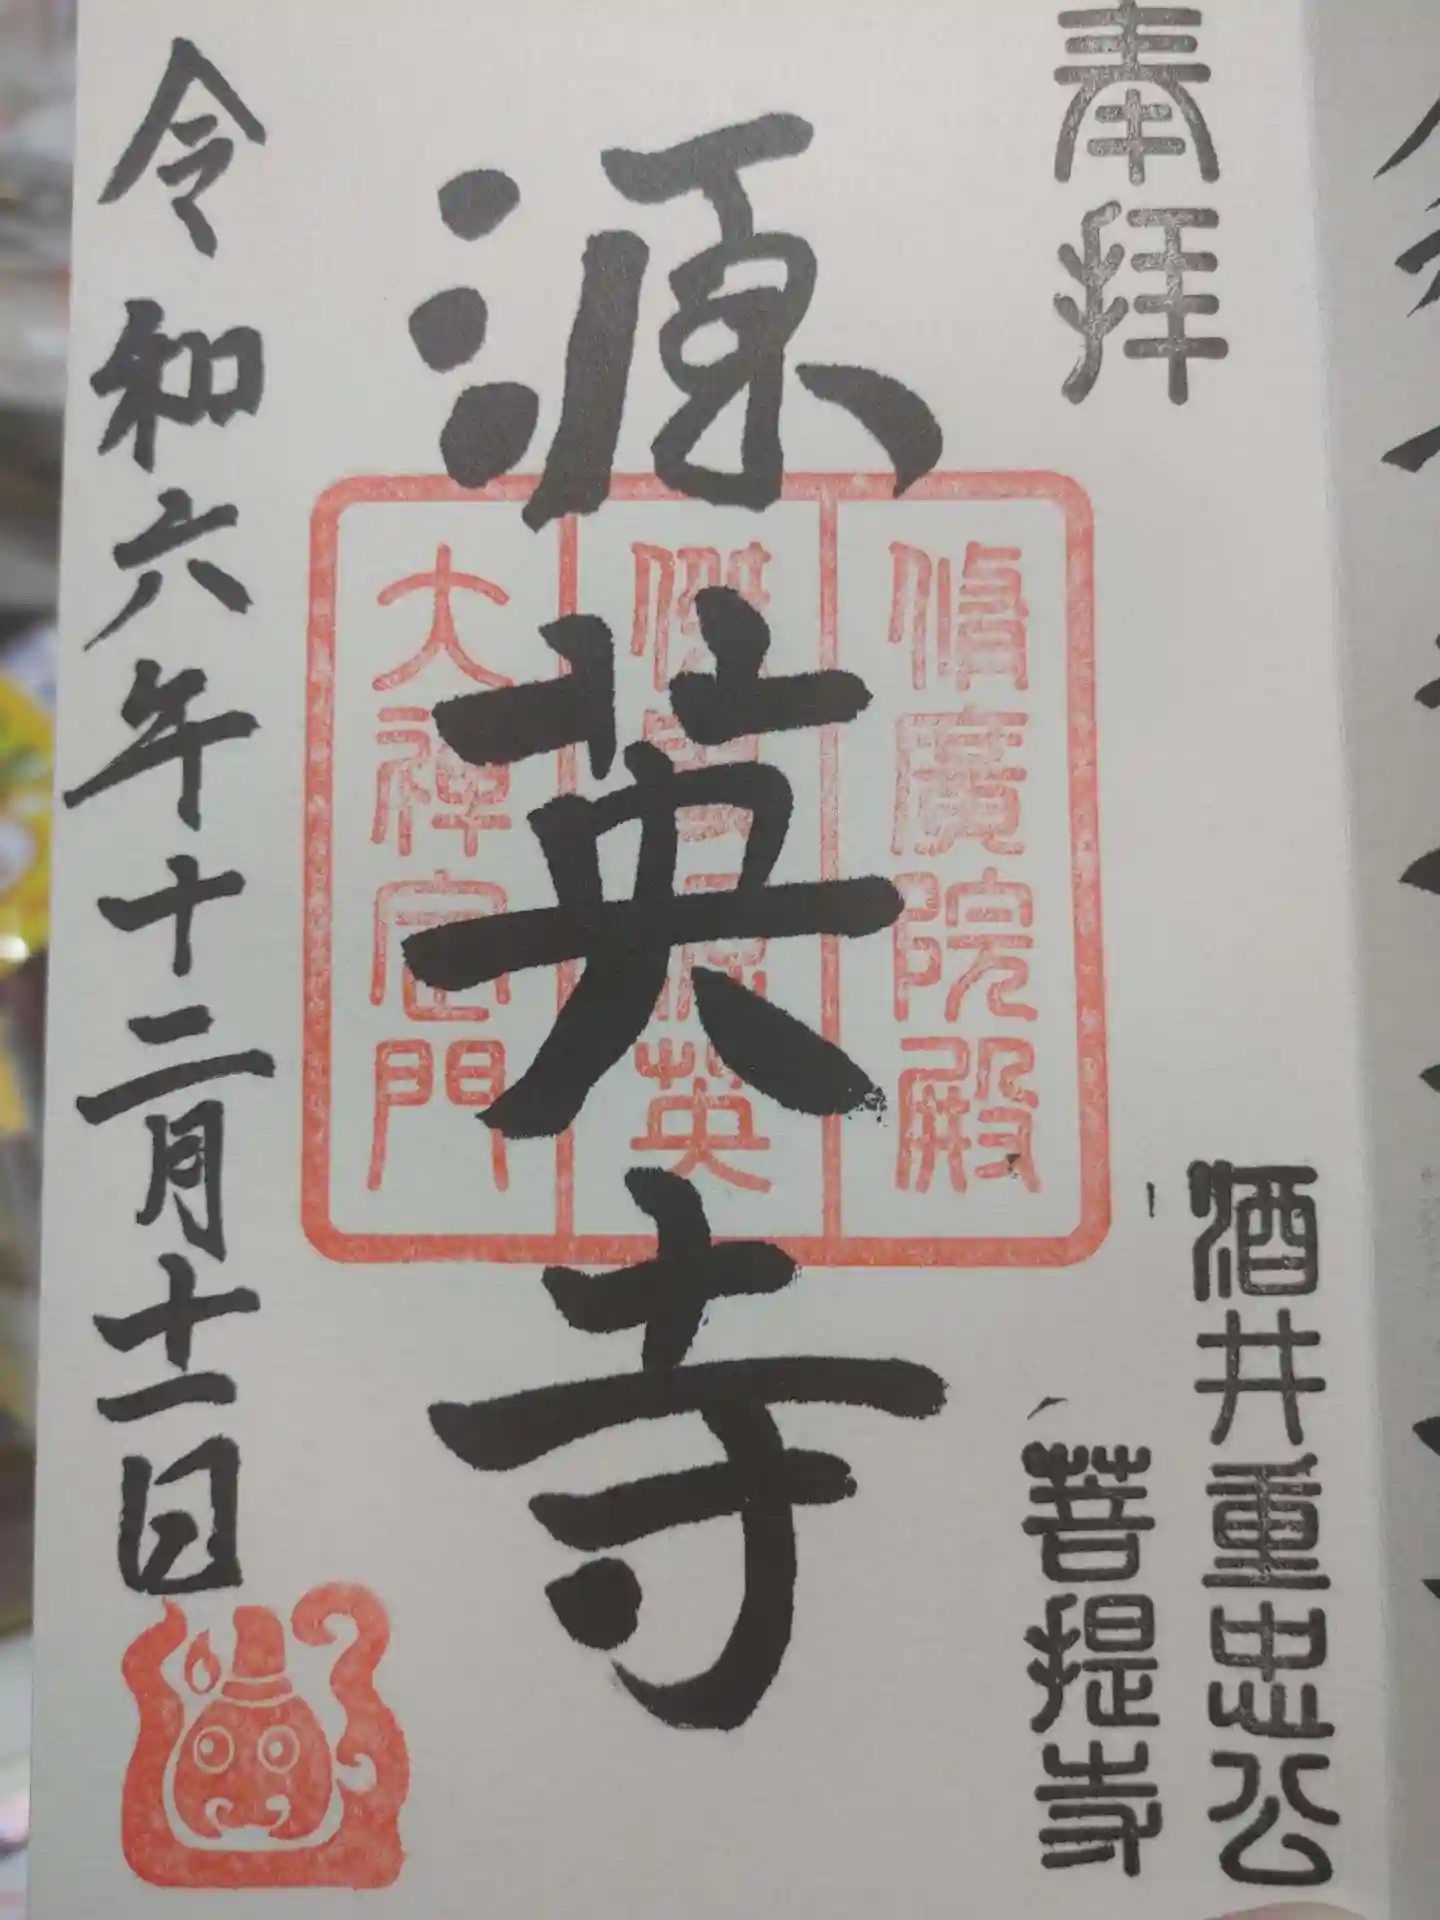 奉拝
酒井重忠公
菩提寺
源英寺
脩廣院殿
英
大禅定門
令和六年十二月十一日